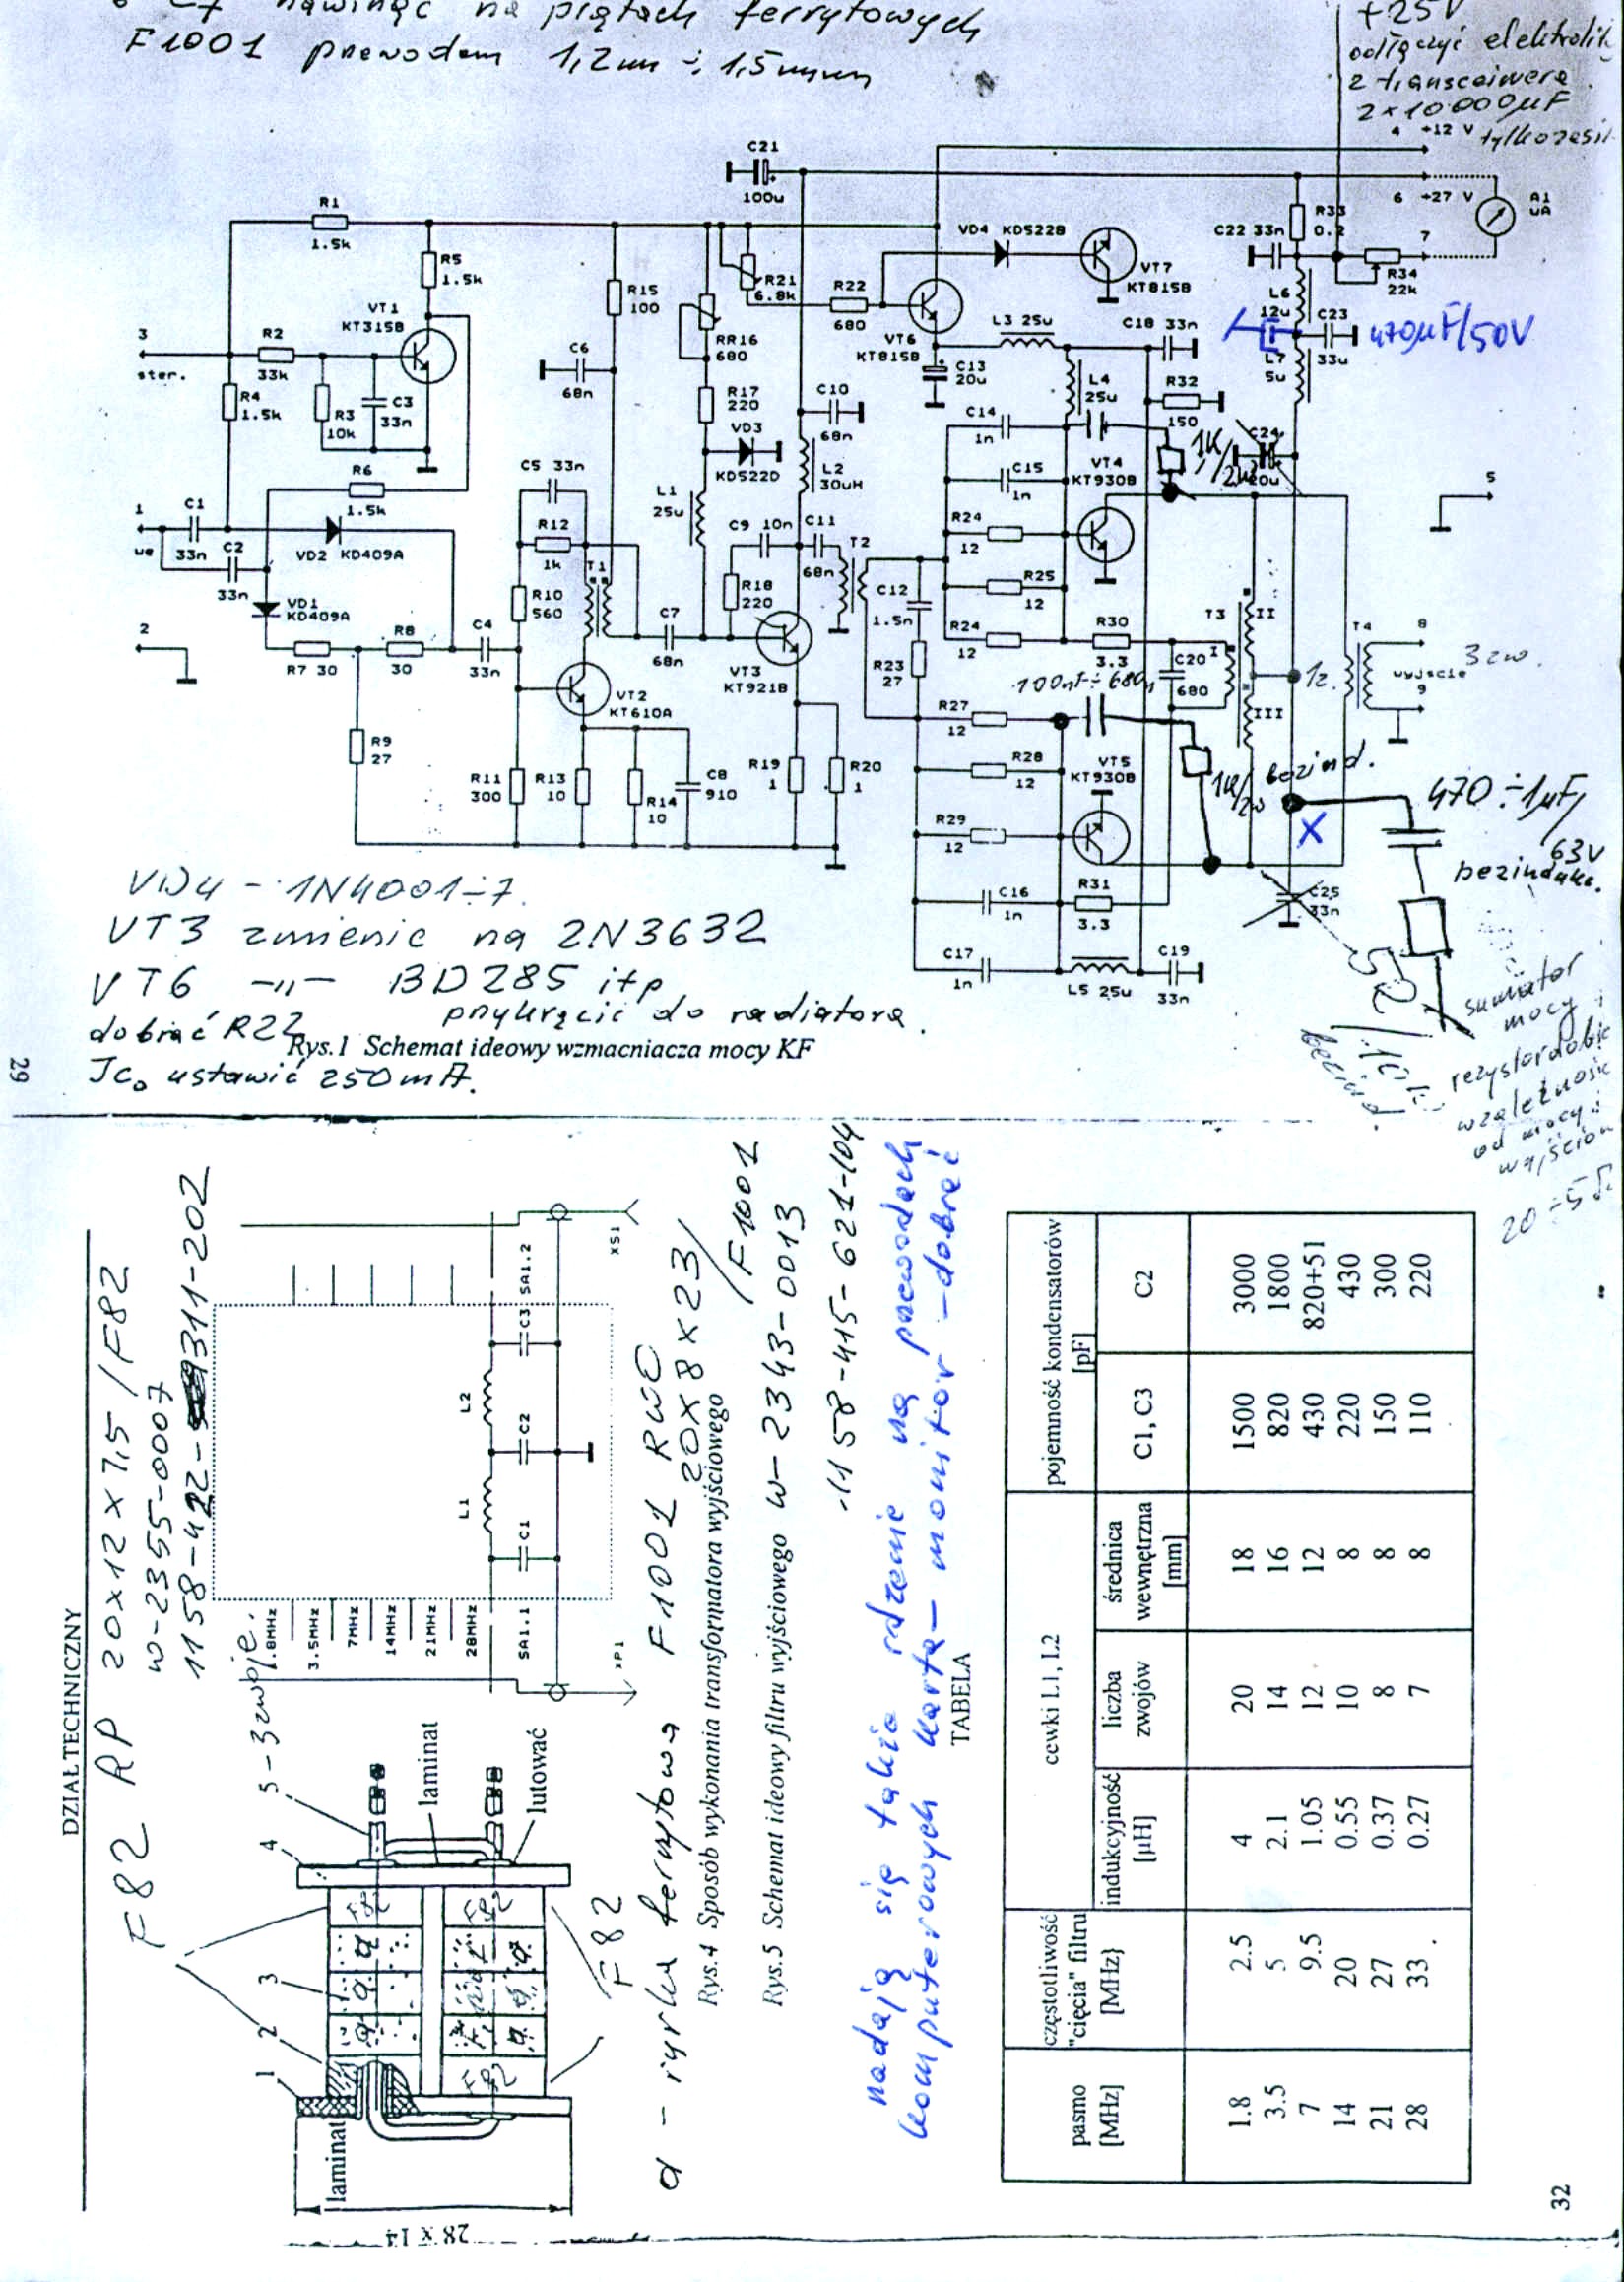 nawinąć na prętach ferrytowych
F1001 przewodem 1,2mm ÷ 1,5mm
+25V
odłączyć elektrolity
z transceivera
2x10000µF
tylko
4 +12 V
C21
100u
6 +27 V
A1
uA
R1
1.5k
R5
1.5k
VT1
KT315B
3
ster.
R2
33k
R4
1.5k
R3
10k
C3
33n
R6
1.5k
1
we
C1
33n
C2
33n
VD2 KD409A
VD1
KD409A
2
R7 30
R8
30
C4
33n
R9
27
C5 33n
R12
1k
T1
R10
560
R11
300
VT2
KT610A
R13
10
R14
10
C8
910
R15
100
C6
68n
RR16
680
R17
220
VD3
KD522D
L1
25u
C7
68n
R21
6.8k
R22
680
VD4 KD522B
VT7
KT815B
VT6
KT815B
C13
20u
C10
68n
L2
30uH
C9 10n
C11
68n
T2
R18
220
VT3
KT921B
R19
1
R20
1
L3 25u
L4
25u
C18 33n
R32
150
C14
1n
C15
1n
VT4
KT930B
R24
12
R25
12
R24
12
C12
1.5n
R23
27
R30
3.3
C20
680
T3
I
II
III
T4
8
wyjscie
9
3 zw.
1z.
5
R33
0.2
C22 33n
7
R34
22k
L6
12u
C23
33u
L7
5u
470µF/50V
C24
20u
1K/2W
100nF ÷ 680n
R27
12
R28
12
R29
12
VT5
KT930B
1K/2W
bezind.
X
470 ÷ 1µF
63V
bezindukc.
C16
1n
R31
3.3
C17
1n
L5 25u
C19
33n
C25
33n
sumator
mocy
rezystor dobrać
w zależności
od mocy
20 ÷ 5
VD4 - 1N4001÷7.
VT3 zmienić na 2N3632
VT6 -"- BD285 itp
dobrać R22 przykręcić do radiatora.
Rys.1 Schemat ideowy wzmacniacza mocy KF
Jco ustawić 250mA.
29
DZIAŁ TECHNICZNY
F82 RP 20x12x7,5/F82
W-2355-0007
311-202
5 - 3 zwoje.
1
2
3
4
laminat
laminat
lutować
28 X 14
F82
F82
F82
F82
1.8MHz
3.5MHz
7MHz
14MHz
21MHz
28MHz
SA1.1
XP1
L1
L2
C1
C2
C3
SA1.2
XS1
a - rurka ferrytowa F1001 RWO
20x8x23/F1001
Rys.4 Sposób wykonania transformatora wyjściowego
Rys.5 Schemat ideowy filtru wyjściowego
W-2343-0013
1158-415-621-104
nadają się także rdzenie na przewodach
komputerowych karta - monitor - dobrać
TABELA
pasmo [MHz] częstotliwość "cięcia" filtru [MHz} cewki L1, L2 pojemność kondensatorów [pF]
indukcyjność [µH] liczba zwojów średnica wewnętrzna [mm] C1, C3 C2
1.8 2.5 4 20 18 1500 3000
3.5 5 2.1 14 16 820 1800
7 9.5 1.05 12 12 430 820+51
14 20 0.55 10 8 220 430
21 27 0.37 8 8 150 300
28 33 0.27 7 8 110 220
32